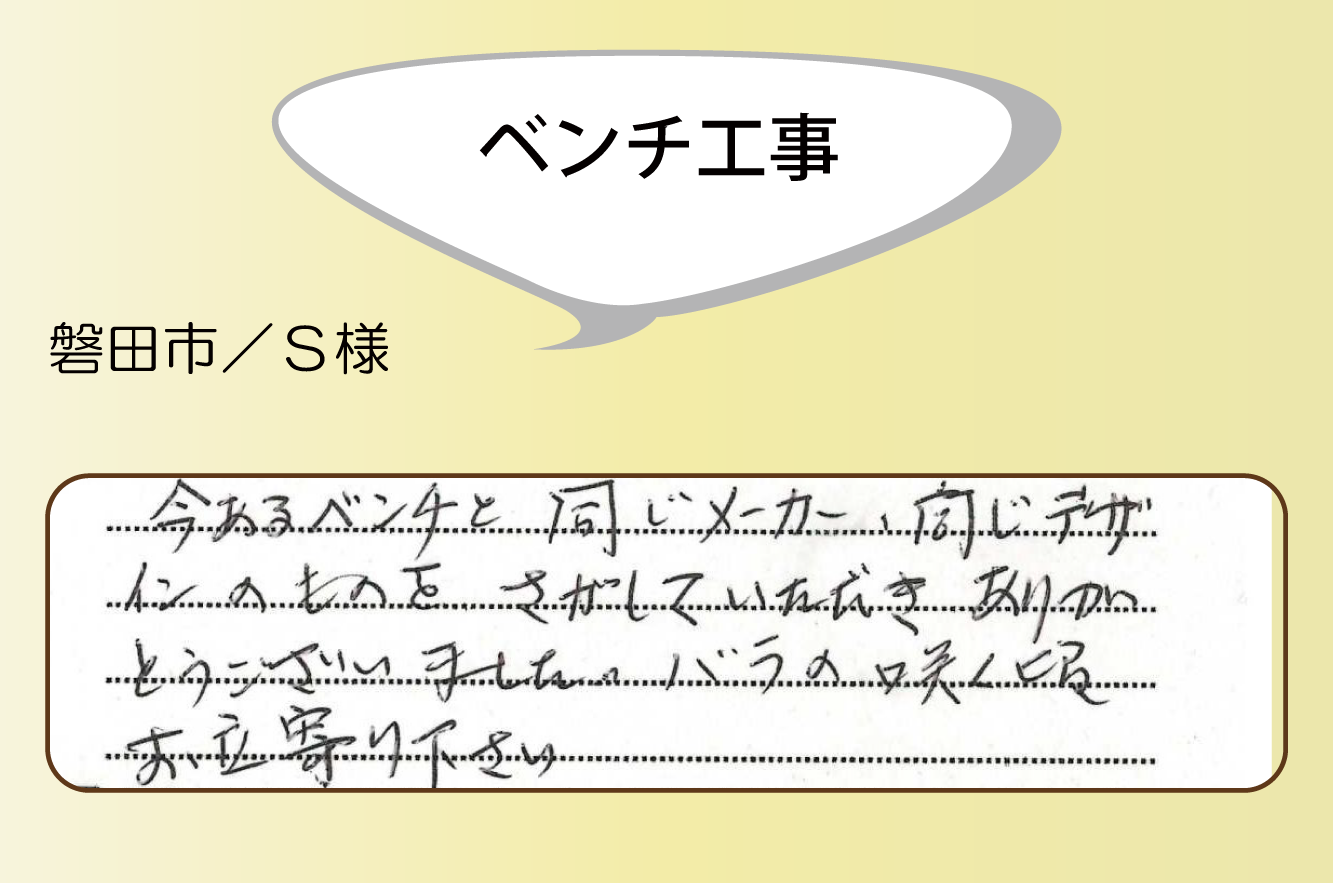 ベンチ工事
磐田市／S様
今あるベンチと同じメーカー、同じデザ
インのものをさがしていただきありが
とうございました。バラの咲く頃
お立寄り下さい